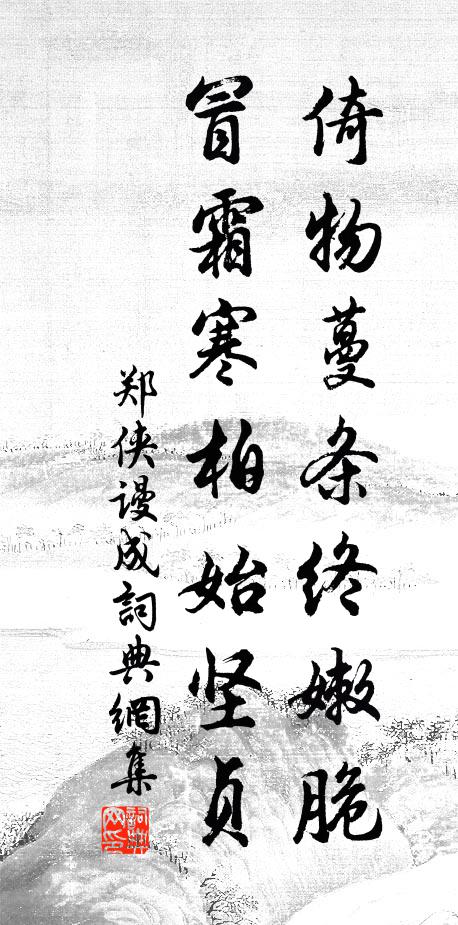 倚物蔓条终嫩脆
冒霜寒柏始坚贞
郑侠谩成詞典網集
詞典网印